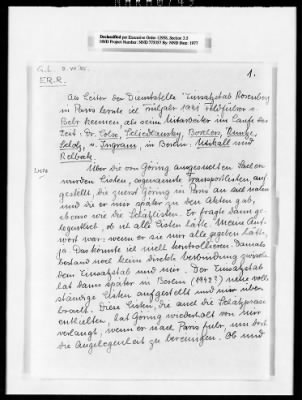 Declassified per Executive Order 12958, Section 3.5
NND Project Number: NND 775057 By: NND Date: 1977
1.
E.R.R.
Als Leiter der Dienststelle "Einsatzstab Rosenberg"
in Paris lernte ich Frühjahr 1941 Feldführer v.
Behr kennen, als seine Mitarbeiter im Laufe der
Zeit: Dr. Lohse, Schiedlausky, Borchers, Kuntze,
Scholz, u. Ingram, in Berlin: Utikall und
Über die von Göring ausgesuchten Sachen
wurden Listen, sogenannte Transportlisten, auf-
gestellt, die zuerst Göring in Paris an sich nahm
und die er mir später zu den Akten gab,
ebenso wie die Schätzlisten. Er fragte dann ge-
legentlich, ob ich alle Listen hätte. Meine Ant-
wort war: wenn er sie mir alle gegeben hätte,
ja. Das könnte ich nicht kontrollieren. Damals
bestand noch keine direkte Verbindung zwischen
dem Einsatzstab und mir. Der Einsatzstab
hat dann später in Berlin (1942?) neue voll-
ständige Listen aufgestellt und mir über-
bracht. Diese Listen, die auch die Schätzpreise
enthielten, hat Göring wiederholt von mir
verlangt, wenn er nach Paris fuhr, um dort
die Angelegenheit zu bereinigen. Ob und